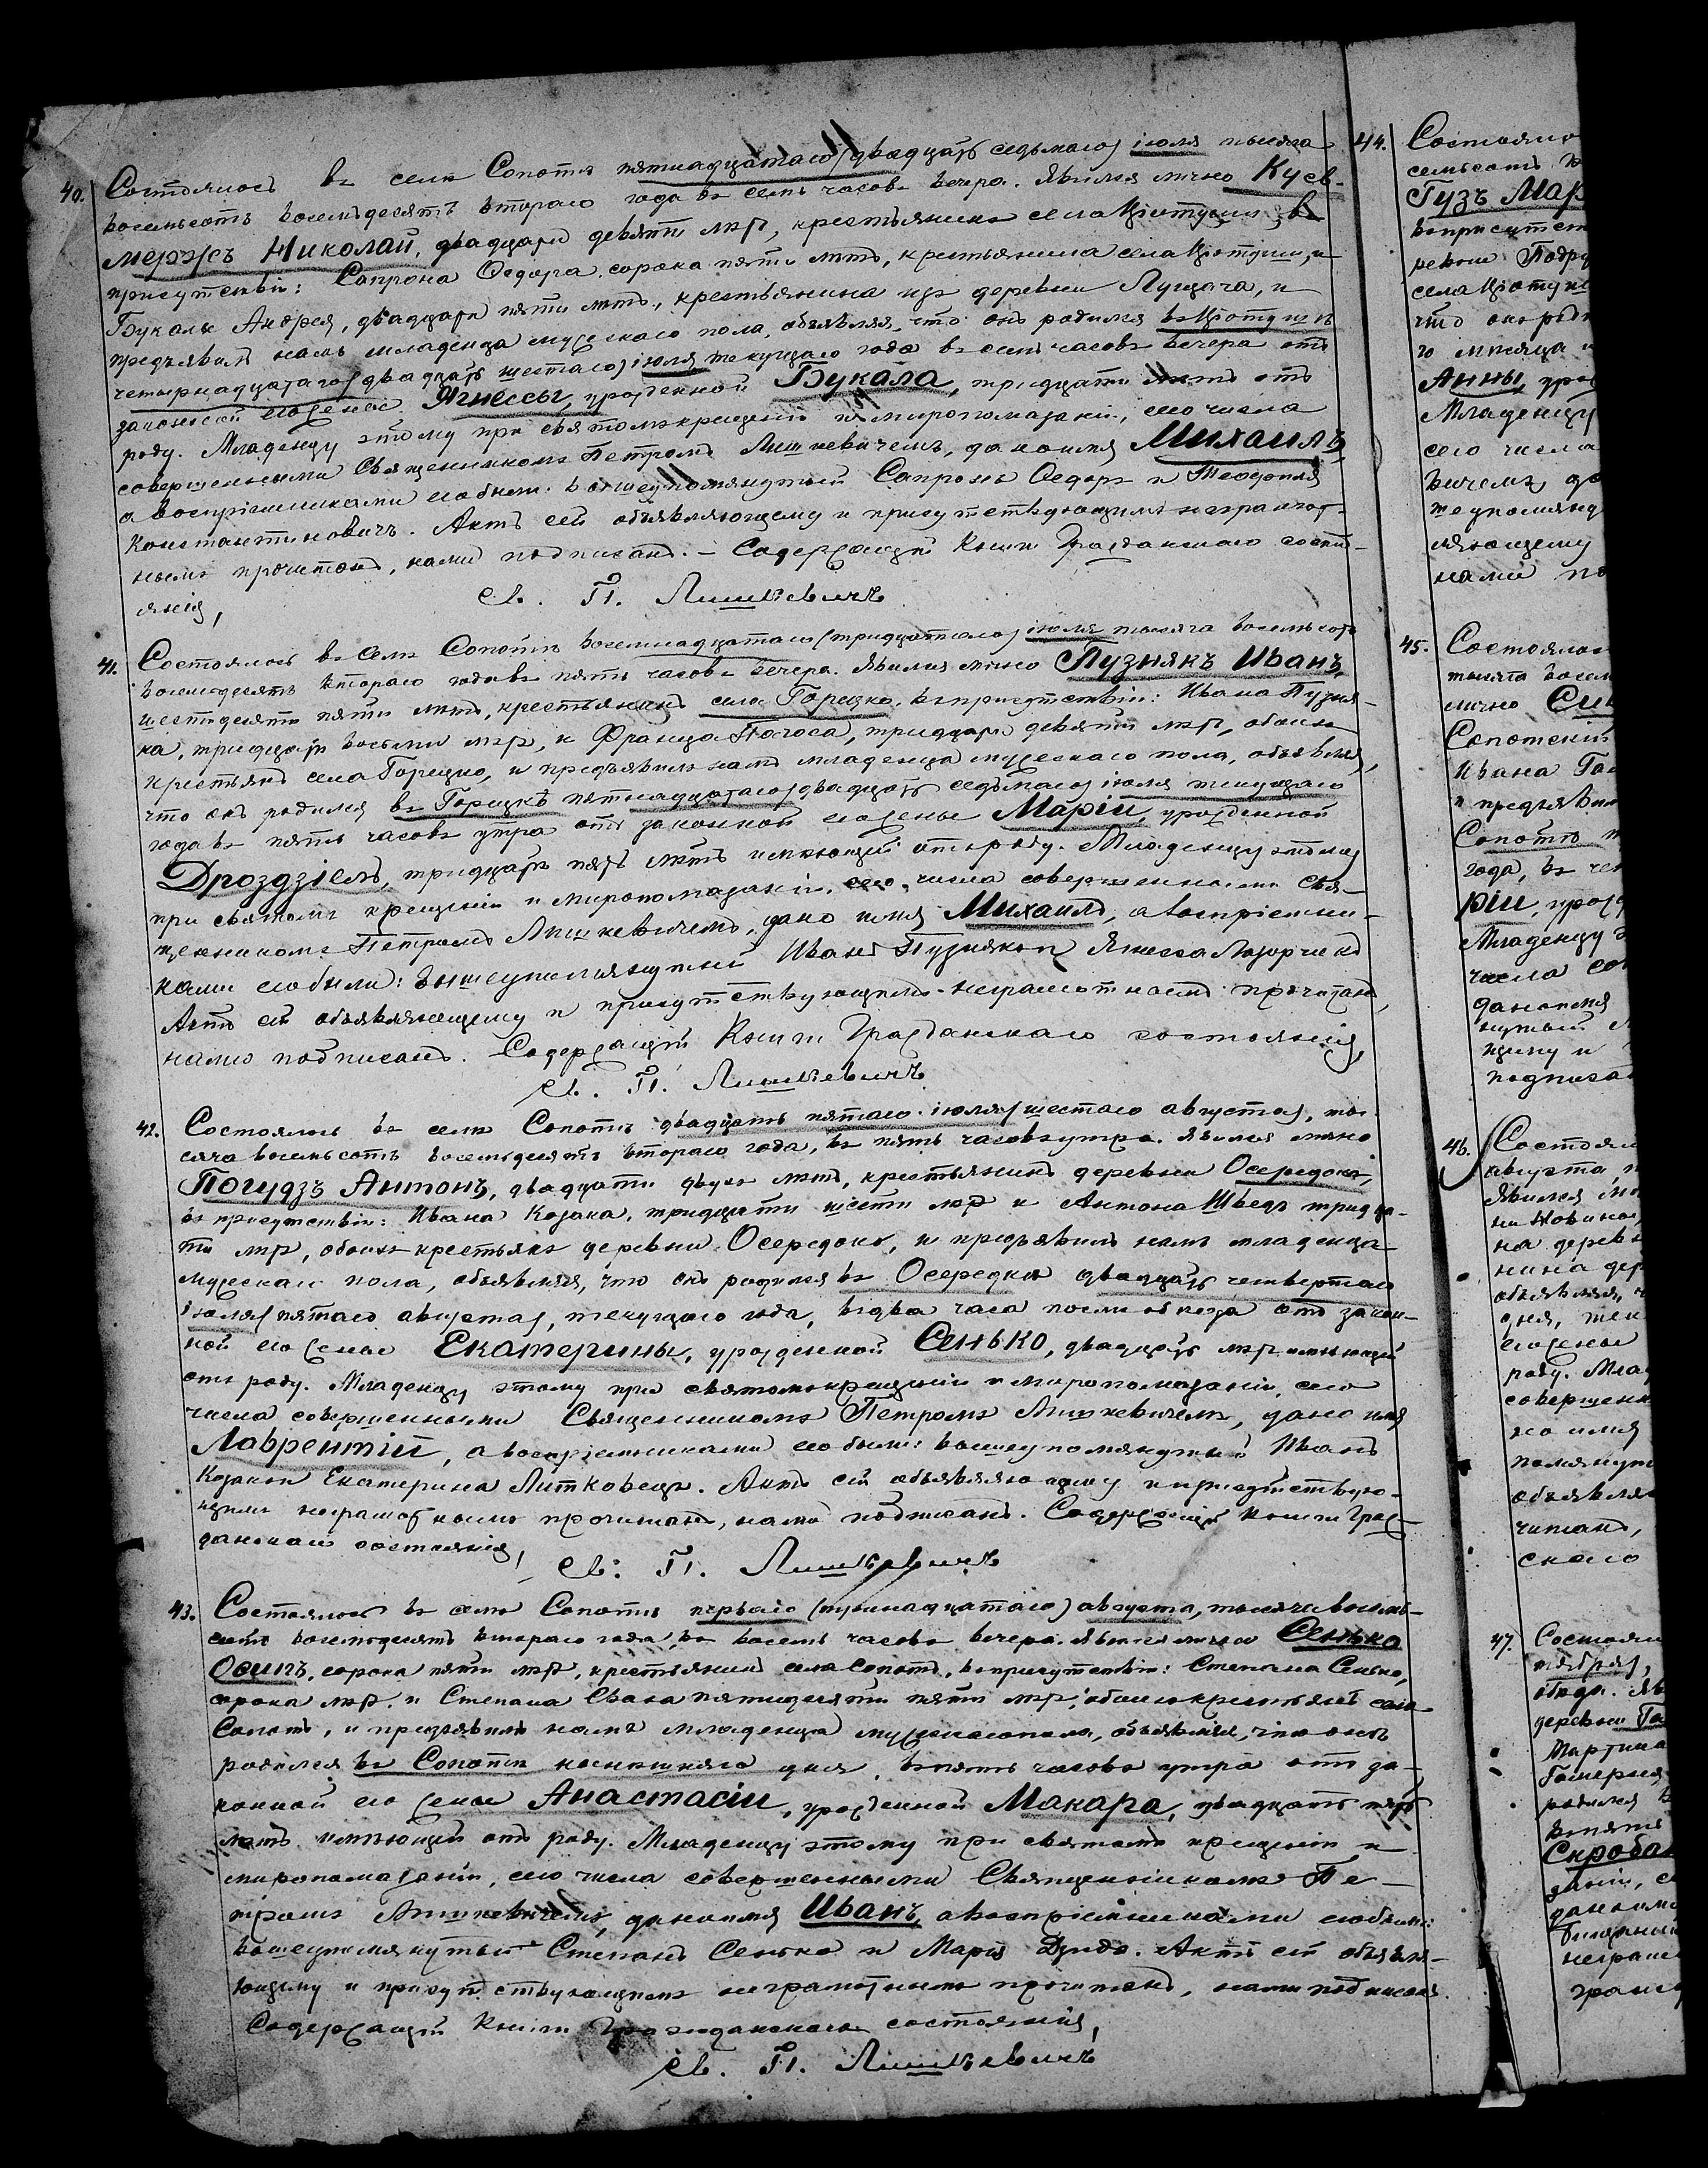 40. Состоялось въ селѣ Сопотѣ пятнадцатаго (двадцать седьмаго) іюля тысяча
восемьсотъ восемьдесятъ втораго года въ семь часовъ вечера. Явился лично Кусь-
мержъ Николай, двадцати девяти лѣтъ, крестьянинъ села Цотуши, въ
присутствіи: Сапрона Федора, сорока пяти лѣтъ, крестьянина села Цотуши, и
Букалы Андрея, двадцати пяти лѣтъ, крестьянина изъ деревни Лущача, и
предъявилъ намъ младенца мужескаго пола, объявляя, что онъ родился въ Цотушѣ
четырнадцатаго (двадцать шестаго) іюля текущаго года въ семь часовъ вечера отъ
законной его жены Агнессы, урожденной Букала, тридцати лѣтъ отъ
роду. Младенцу этому при святомъ крещеніи и миропомазаніи, сего числа
совершенными Священникомъ Петромъ Лишкевичемъ, дано имя Михаилъ,
а воспріемниками его были: вышеупомянутый Сапронъ Федоръ и
Константиновичъ. Актъ сей объявляющему и присутствующимъ неграмот-
нымъ прочитанъ, нами подписанъ. – Содержащій Книги Гражданскаго состо-
янія,
Св. П. Лишкевичъ
41. Состоялось въ Селѣ Сопотѣ восемнадцатаго (тридцатаго) іюля тысяча восемьсотъ
восемдесятъ втораго года въ пять часовъ вечера. Явился лично Пузнякъ Иванъ,
шестдесяти пяти лѣтъ, крестьянинъ села Горецко, въ присутствіи: Ивана Пузня-
ка, тридцати восьми лѣтъ, и Франца Погоса, тридцати девяти лѣтъ, обоихъ
крестьянъ села Горецко, и предъявилъ намъ младенца мужескаго пола, объявляя,
что онъ родился въ Горецкѣ пятнадцатаго (двадцать седьмаго) іюля текущаго
года въ пять часовъ утра отъ законной его жены Маріи, урожденной
Дроздзіель, тридцать пять лѣтъ имѣющей отъ роду. Младенцу этому
при святомъ крещеніи и миропомазаніи, сего числа совершенными Свя-
щенникомъ Петромъ Лишкевичемъ, дано имя Михаилъ, а воспріемни-
ками его были: вышеупомянутый Иванъ Пузнякъ и Агнесса
Актъ сей объявляющему и присутствующимъ неграмотнымъ прочитанъ,
нами подписанъ. Содержащій Книги Гражданскаго состоянія,
Св. П. Лишкевичъ
42. Состоялось въ селѣ Сопотѣ двадцать пятаго іюля (шестаго августа), ты-
сяча восемьсотъ восемьдесятъ втораго года, въ пять часовъ утра. Явился лично
Погудзъ Антонъ, двадцати двухъ лѣтъ, крестьянинъ деревни Осередокъ,
въ присутствіи: Ивана Козака, тридцати шести лѣтъ и Антона Шведъ тридца-
ти лѣтъ, обоихъ крестьянъ деревни Осередокъ, и предъявилъ намъ младенца
мужескаго пола, объявляя, что онъ родился въ Осередкѣ двадцать четвертаго
іюля (пятаго августа), текущаго года, въ два часа послѣ обѣда отъ закон-
ной его жены Екатерины, урожденной Сенько, двадцать лѣтъ имѣющей
отъ роду. Младенцу этому при святомъ крещеніи и миропомазаніи, сего
числа совершенными Священникомъ Петромъ Лишкевичемъ, дано имя
Лаврентій, а воспріемниками его были: вышеупомянутый Иванъ
Козакъ и Екатерина Литковецъ. Актъ сей объявляющему и присутствую-
щимъ неграмотнымъ прочитанъ, нами подписанъ. Содержащій Книги Граж-
данскаго состоянія,
Св. П. Лишкевичъ
43. Состоялось въ селѣ Сопотѣ перваго (тринадцатаго) августа, тысяча восемь-
сотъ восемдесятъ втораго года, въ восемь часовъ вечера. Явился лично Сенько
Осипъ, сорока пяти лѣтъ, крестьянинъ села Сопотъ, въ присутствіи: Степана Сенько,
сорока лѣтъ, и Степана пятидесяти пяти лѣтъ, обоихъ крестьянъ села
Сопотъ, и предъявилъ намъ младенца мужескаго пола, объявляя, что онъ
родился въ Сопотѣ нынѣшняго дня, въ пять часовъ утра отъ за-
конной его жены Анастасіи, урожденной Макара, двадцать пять
лѣтъ имѣющей отъ роду. Младенцу этому при святомъ крещеніи и
миропомазаніи, сего числа совершенными Священникомъ Пе-
тромъ Лишкевичемъ, дано имя Иванъ, а воспріемниками его были:
вышеупомянутый Степанъ Сенько и Марія Дзидо. Актъ сей объявля-
ющему и присутствующимъ неграмотнымъ прочитанъ, нами подписанъ.
Содержащій Книги Гражданскаго состоянія,
Св. П. Лишкевичъ
44. Состояло
семьсотъ
Гузъ Мар
въ присутст
ревни Подру
села Цотуш
что онъ роди
го мѣсяца
Анны, уро
Младенцу
сего числа
вичемъ, да
шеупомянут
ляющему
нами по
45. Состоялос
тысяча восем
лично Сен
Сопотскій
Ивана Га
и предъявил
Сопотѣ
года, въ че
ріи, урож
Младенцу э
числа со
дано имя
нутый
щему и
подписан
46. Состоял
августа,
Явился ли
на дерев
нина дер
объявляя, ч
дня, тек
его жены
роду. Мла
совершен
но имя
помянут
объявля
читанъ,
скаго
47. Состоял
тября),
обѣда. Яв
деревни Га
Мартина
родился в
въ пять
Скроба
дано имя
неграм
гражд